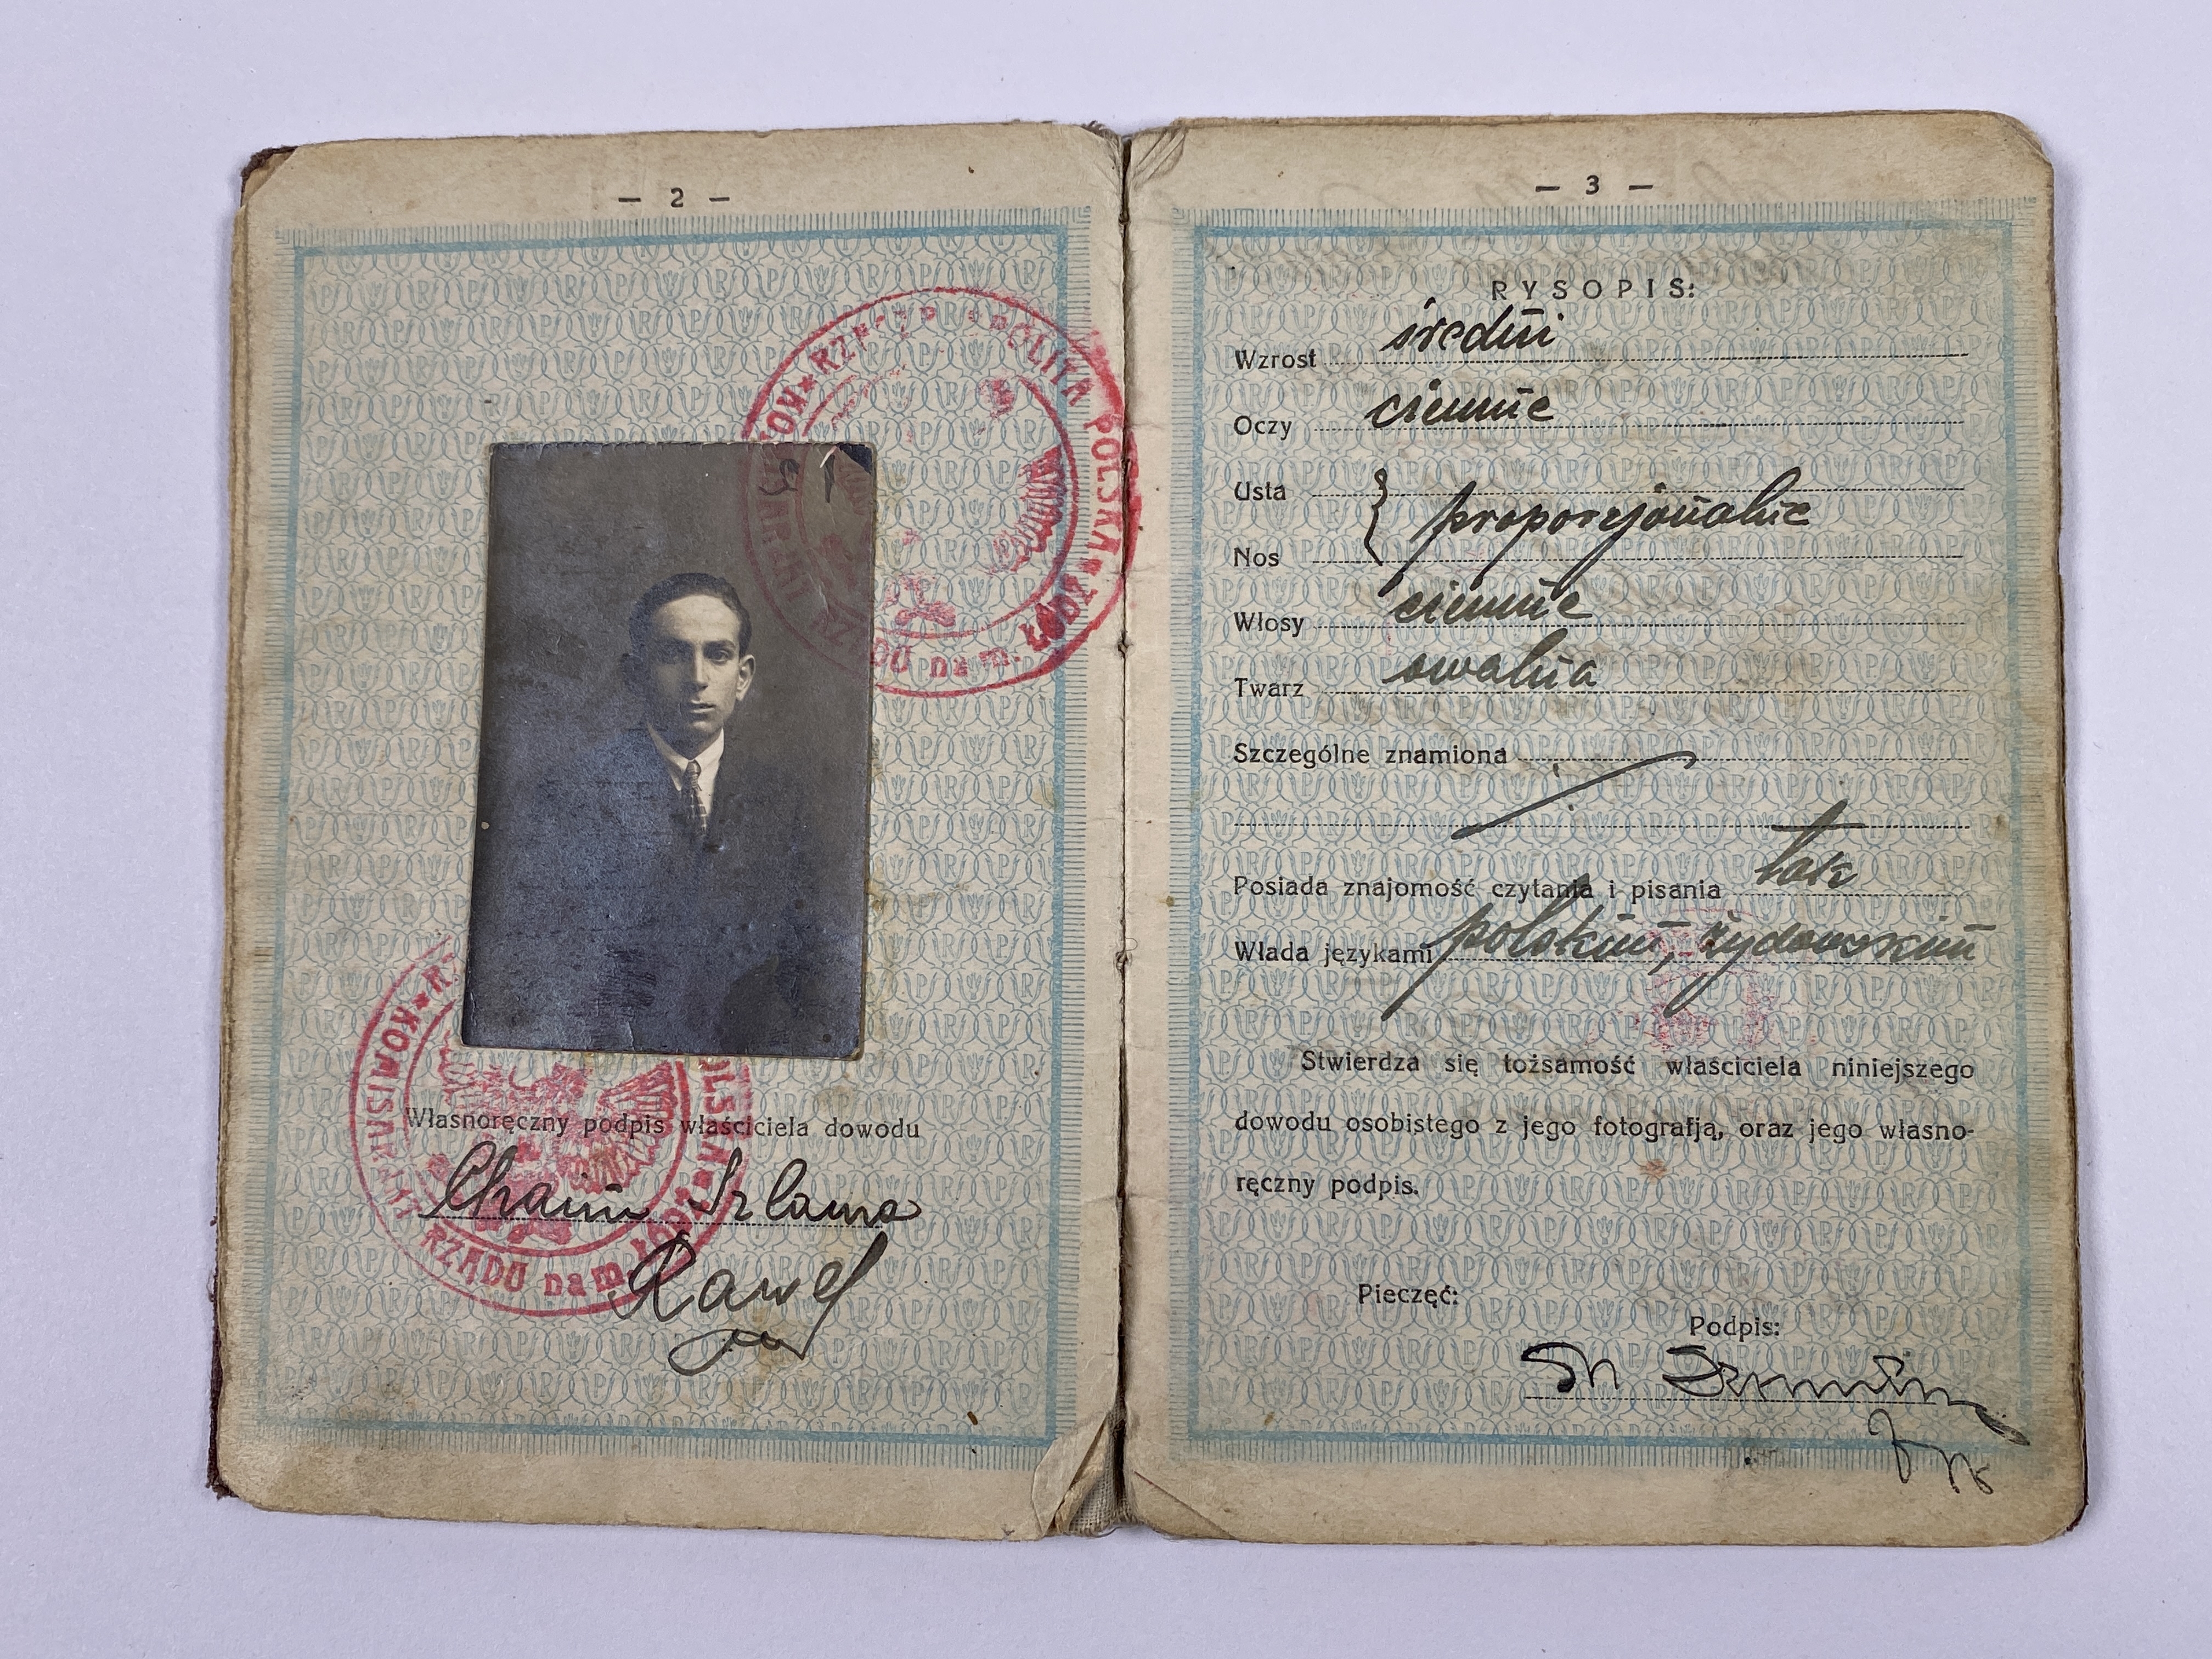 — 2 —
RZ POLITA POLSKA * ŁÓDŹ
RZĄDU na m.
Własnoręczny podpis właściciela dowodu
Chaim Szlama
KOMISARJAT RZĄDU na m.
— 3 —
RYSOPIS:
Wzrost średni
Oczy ciemne
Usta } proporcjonalne
Nos
Włosy ciemne
Twarz owalna
Szczególne znamiona
Posiada znajomość czytania i pisania tak
Włada językami polskim, żydowskim
Stwierdza się tożsamość właściciela niniejszego
dowodu osobistego z jego fotografją, oraz jego własno-
ręczny podpis.
Pieczęć:
Podpis: